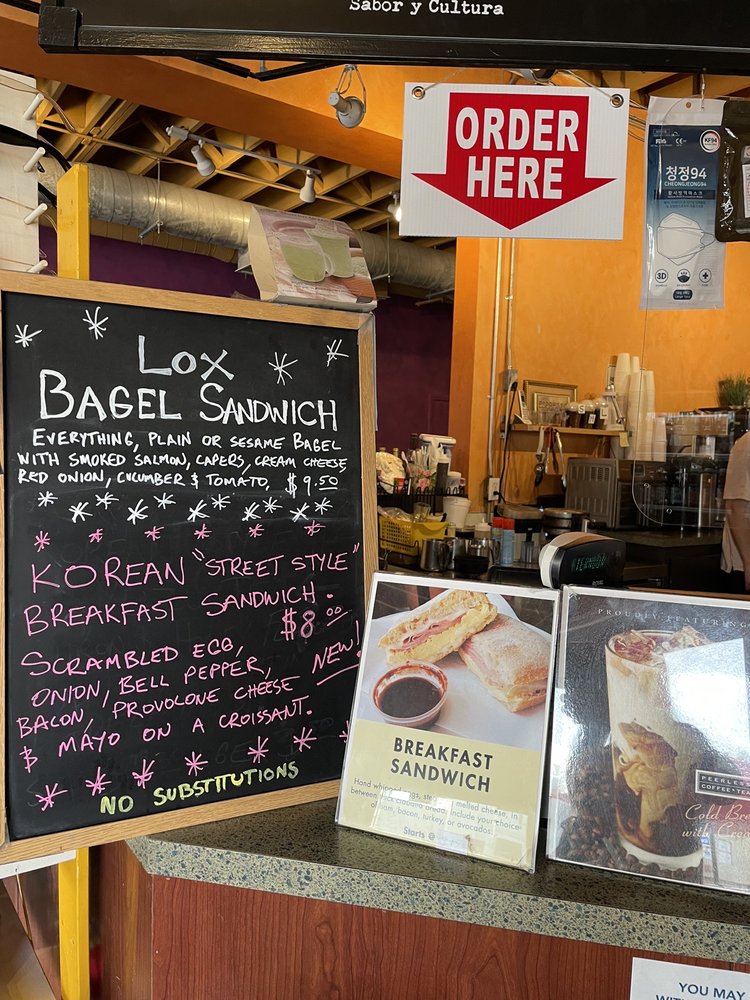 Sabor y Cultura
ORDER
HERE
KF94
청정94
CHEONGJEONG94
3D
LOX
BAGEL SANDWICH
EVERYTHING, PLAIN OR SESAME BAGEL
WITH SMOKED SALMON, CAPERS, CREAM CHEESE
RED ONION, CUCUMBER & TOMATO, $9.50
KOREAN "STREET STYLE"
BREAKFAST SANDWICH.
$8.00
SCRAMBLED EGG,
ONION, BELL PEPPER, NEW!
BACON, PROVOLONE CHEESE
& MAYO ON A CROISSANT.
NO SUBSTITUTIONS
BREAKFAST
SANDWICH
Hand whipped eggs, melted cheese, in
between ciabatta bread. Include your choice
of ham, bacon, turkey, or avocados.
Starts @
PROUDLY FEATURING
PEERLESS
COFFEE & TEA
Cold Bre
with Cre
YOU MAY